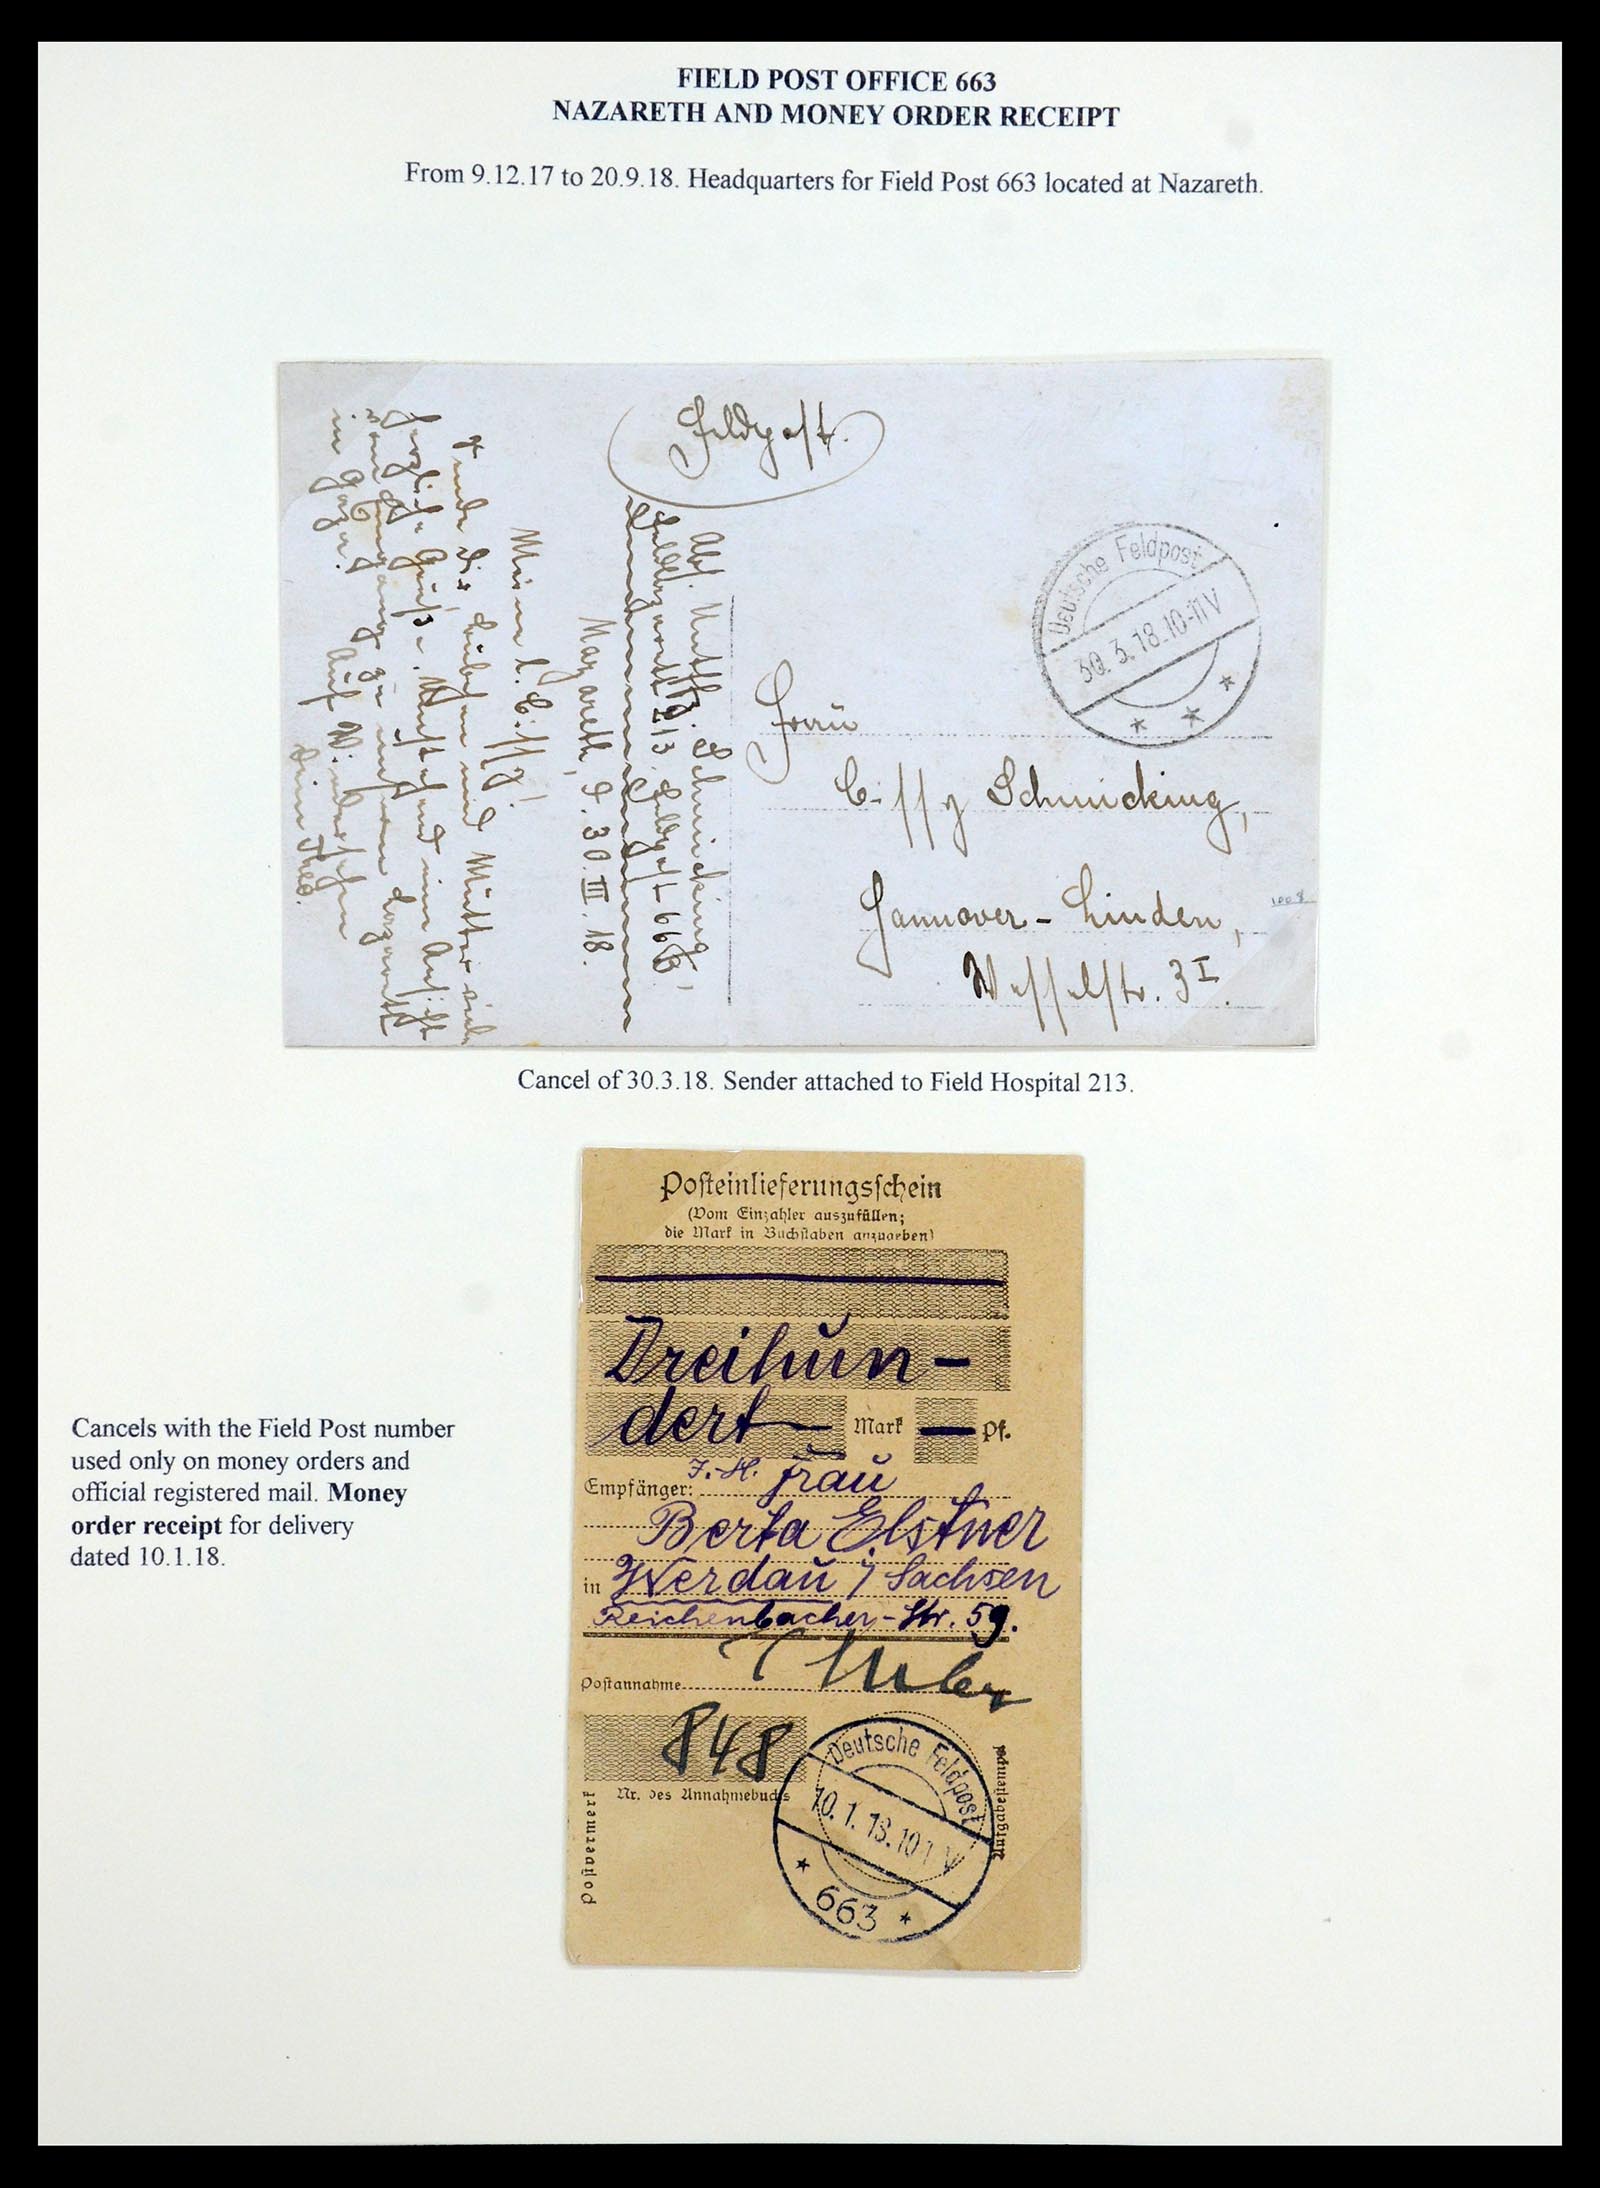 FIELD POST OFFICE 663
NAZARETH AND MONEY ORDER RECEIPT
From 9.12.17 to 20.9.18. Headquarters for Field Post 663 located at Nazareth.
Feldpost.
Deutsche Feldpost
30. 3. 18. 10-11 V
Abs.
Schmicking,
Feldlazarett 213. Feldpost 663
Nazareth, d. 30. III. 18.
Meine l. Cissy!
Sende Dir, Liebchen und Mutter viele
herzliche Grüße.
in Gaza. Auf Wiedersehen
Dein Theo.
Frau
Cissy Schmicking,
Hannover-Linden,
Wesselstr. 3 I.
Cancel of 30.3.18. Sender attached to Field Hospital 213.
Posteinlieferungsschein
(Vom Einzahler auszufüllen;
die Mark in Buchstaben anzugeben)
Dreihun-
dert Mark — Pf.
Empfänger: Frau
Berta Elstner
in Werdau i/ Sachsen
Reichenbacher-Str. 59.
Postannahme
848
Nr. des Annahmebuchs
Postvermerk
Aufgabestempel
Deutsche Feldpost
10. 1. 18. 10-11 V
* 663 *
Cancels with the Field Post number
used only on money orders and
official registered mail. Money
order receipt for delivery
dated 10.1.18.